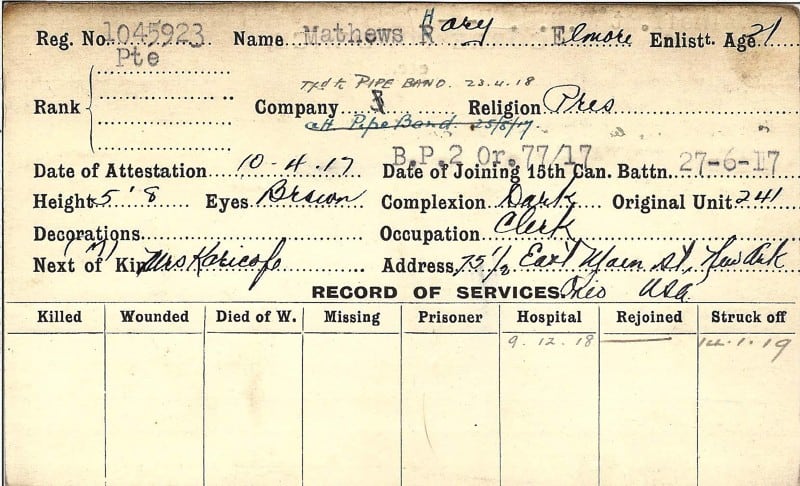 Reg. No. 1045923 Name Mathews Hary Elmore Enlistt. Age 21
Pte
Txd to PIPE BAND. 23.4.18
Rank Company Religion Pres
att Pipe Band. 25/8/17
B.P.2 Or. 77/17
Date of Attestation 10-4-17 Date of Joining 15th Can. Battn. 27-6-17
Height 5'8 Eyes Brown Complexion Dark Original Unit 241
Decorations Occupation Clerk
(M)
Next of Kin Mrs Karicofe Address, 75 1/2 East Main St, Newark
RECORD OF SERVICES. Ohio USA
Killed Wounded Died of W. Missing Prisoner Hospital Rejoined Struck off
9.12.18 14.1.19